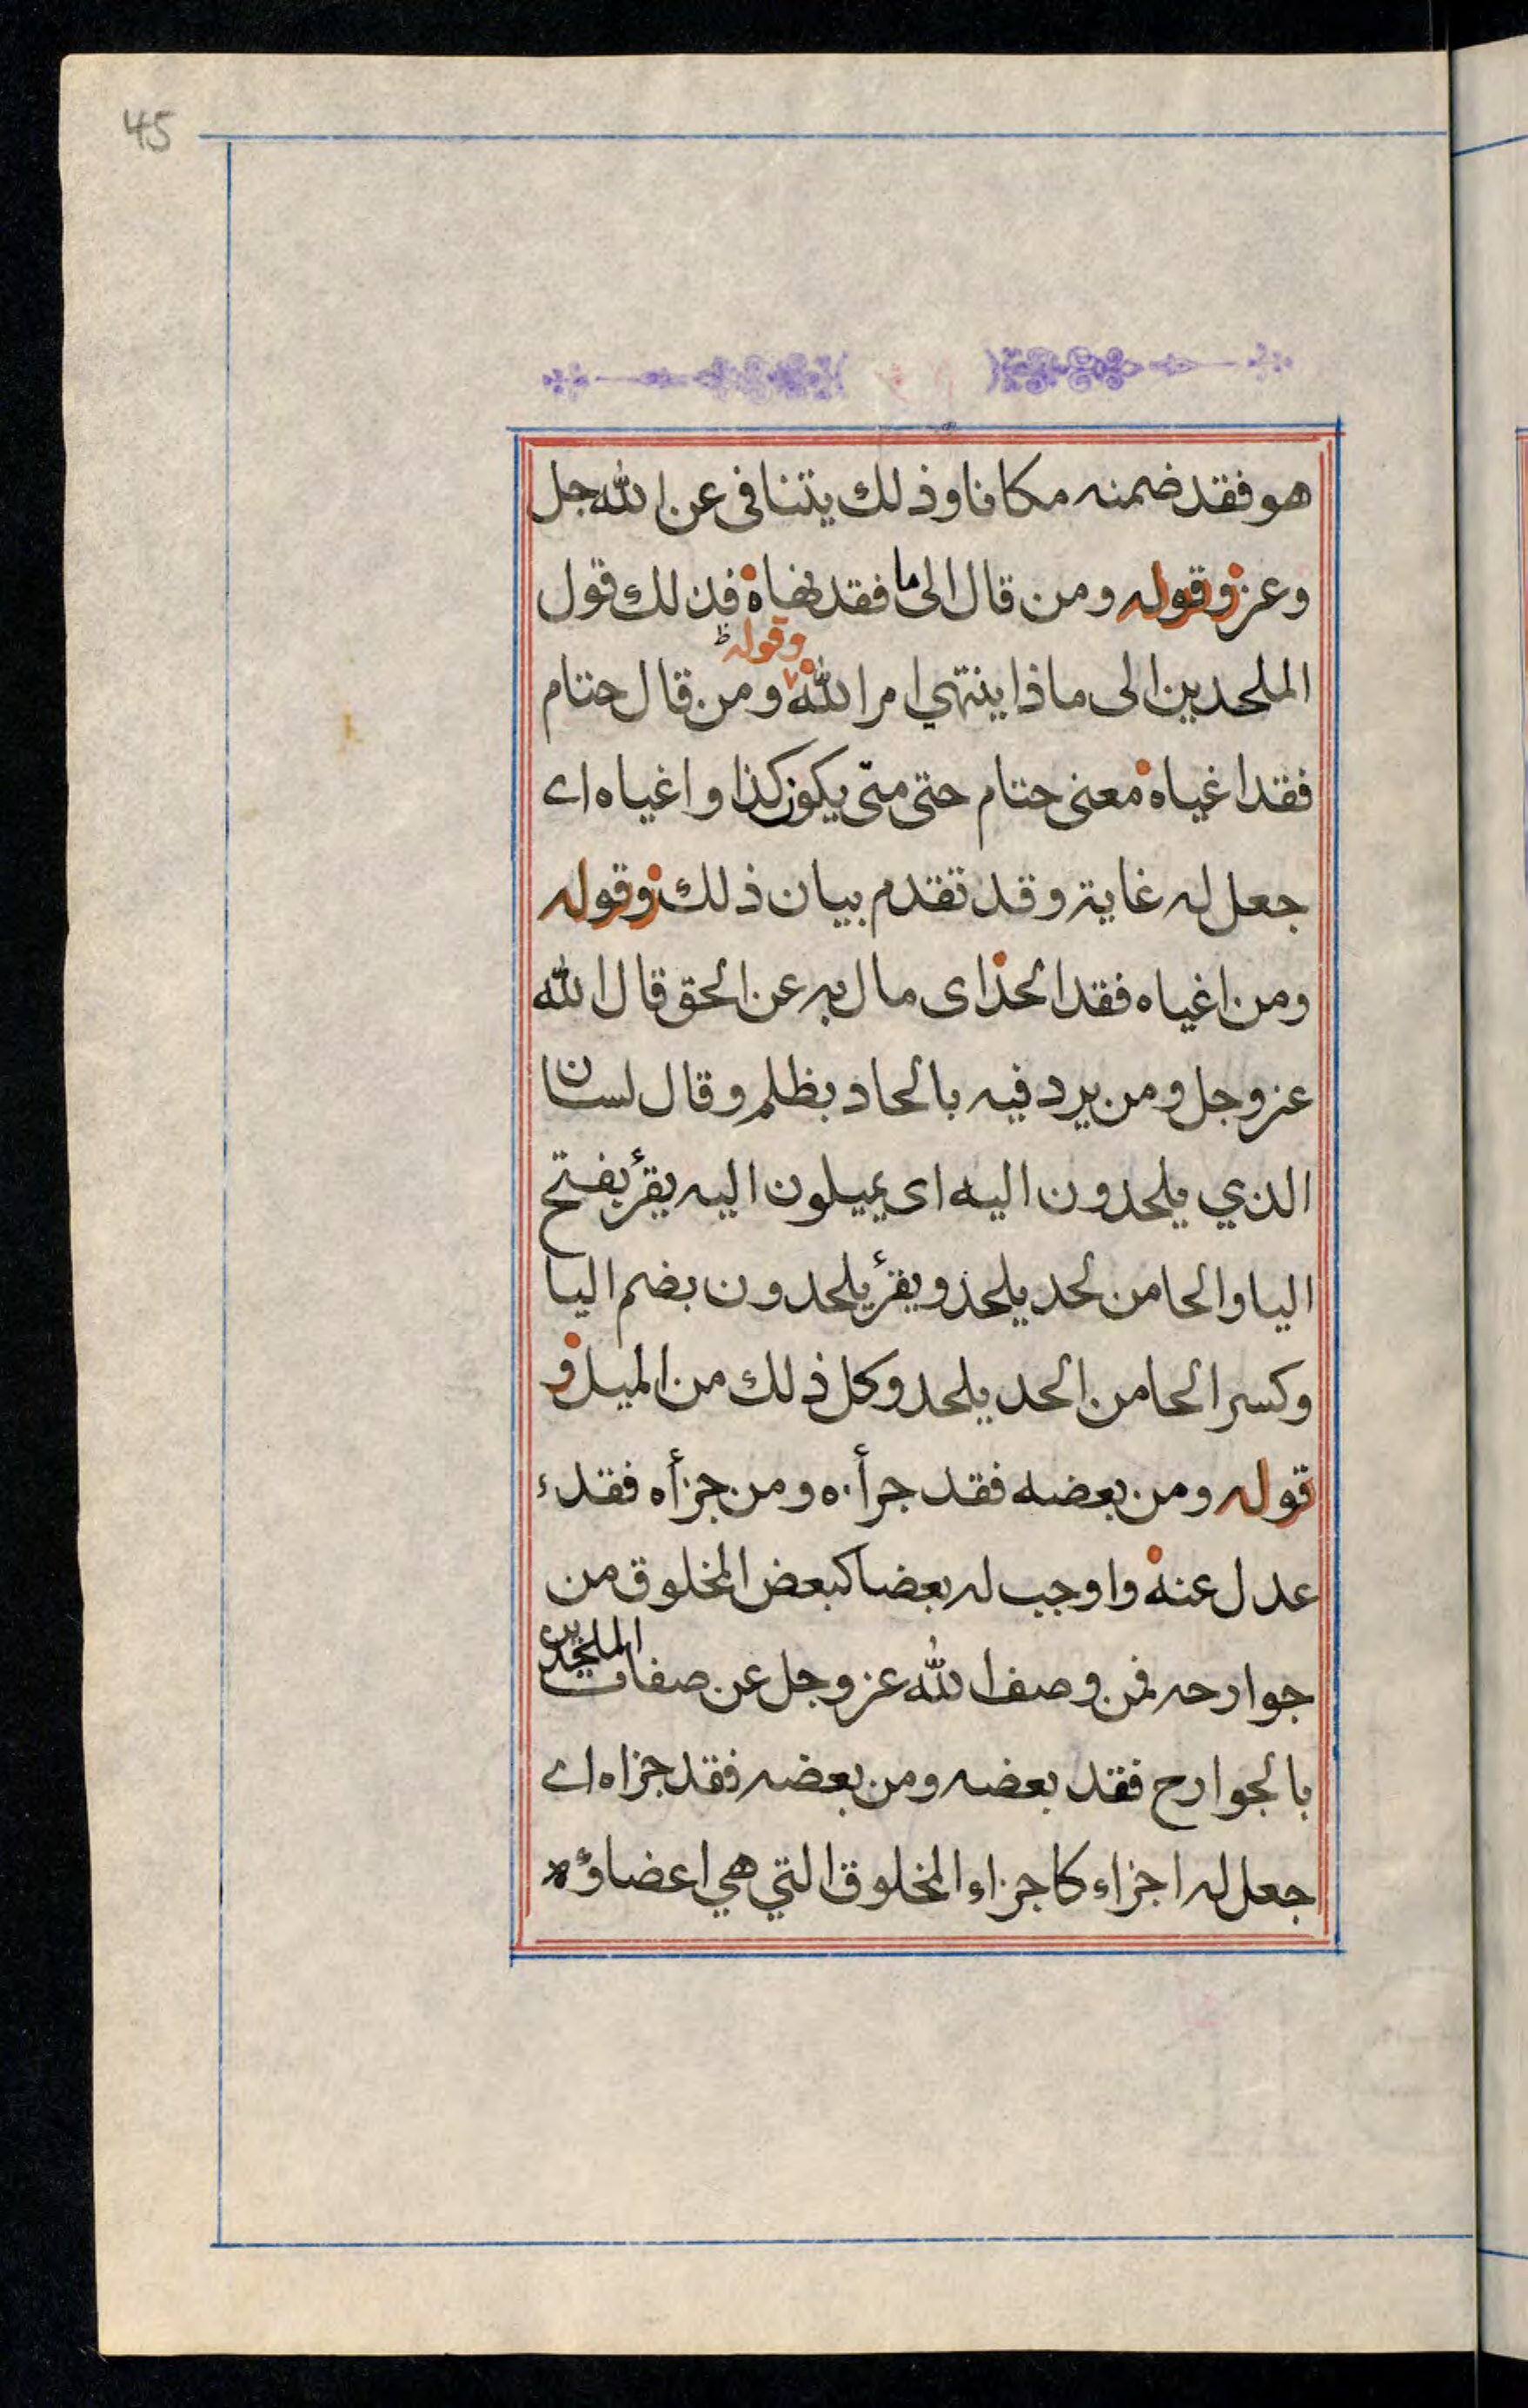 45
هو فقد ضمنه مكانا وذلك يتنافى عن الله جل
وعز وقوله ومن قال الى ما فقد نهاه فذلك قول
وقوله ط
الملحدين الى ماذا ينتهي امر الله ومن قال حتام
فقد اغياه معنى حتام حتى متى يكون كذا واغياه اى
جعل له غاية وقد تقدم بيان ذلك وقوله
ومن اغياه فقد الحد اى مال به عن الحق قال الله
عز وجل ومن يرد فيه بالحاد بظلم وقال لسان
الذي يلحدون اليه اى يميلون اليه يقرأ بفتح
اليا والحا من لحد يلحد ويقرأ يلحدون بضم اليا
وكسر الحا من الحد يلحد وكل ذلك من الميل و
قوله ومن بعضه فقد جرأه ومن جزأه فقد
عدل عنه واوجب له بعضا كبعض المخلوق من
جوارحه فمن وصف الله عز وجل عن صفات الملحدين
بالجوارح فقد بعضه ومن بعضه فقد جزاه اى
جعل له اجزاء كاجزاء المخلوق التي هي اعضاؤه